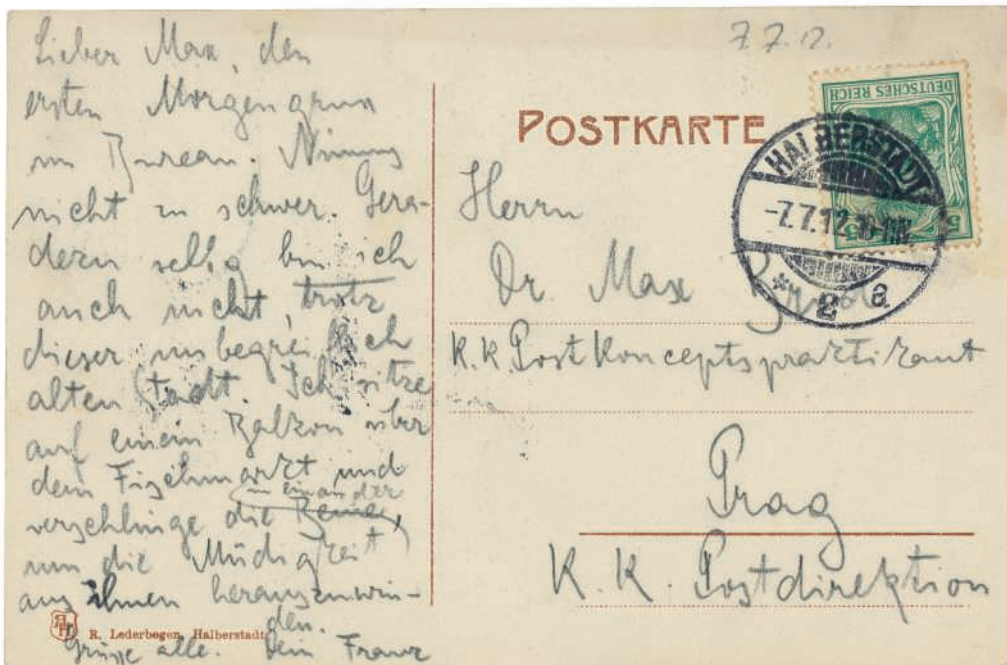 Lieber Max, den
ersten Morgengruss
im Bureau. Nimms
nicht zu schwer. Gera-
dezu selig bin ich
auch nicht, trotz
dieser unbegreiflich
alten Stadt. Ich sitze
auf einem Balkon über
dem Fischmarkt und
in einander
verschlinge die Beine,
um die Müdigkeit
aus ihnen herauszuwin-
den.
Grüsse alle. Dein Franz
R. Lederbogen, Halberstadt
7.7.12.
DEUTSCHES REICH
5 5
POSTKARTE
HALBERSTADT
-7.7.12.
* 2 a
Herrn
Dr. Max Brod
K.K. Postkonceptspraktikant
Prag
K. K. Postdirektion